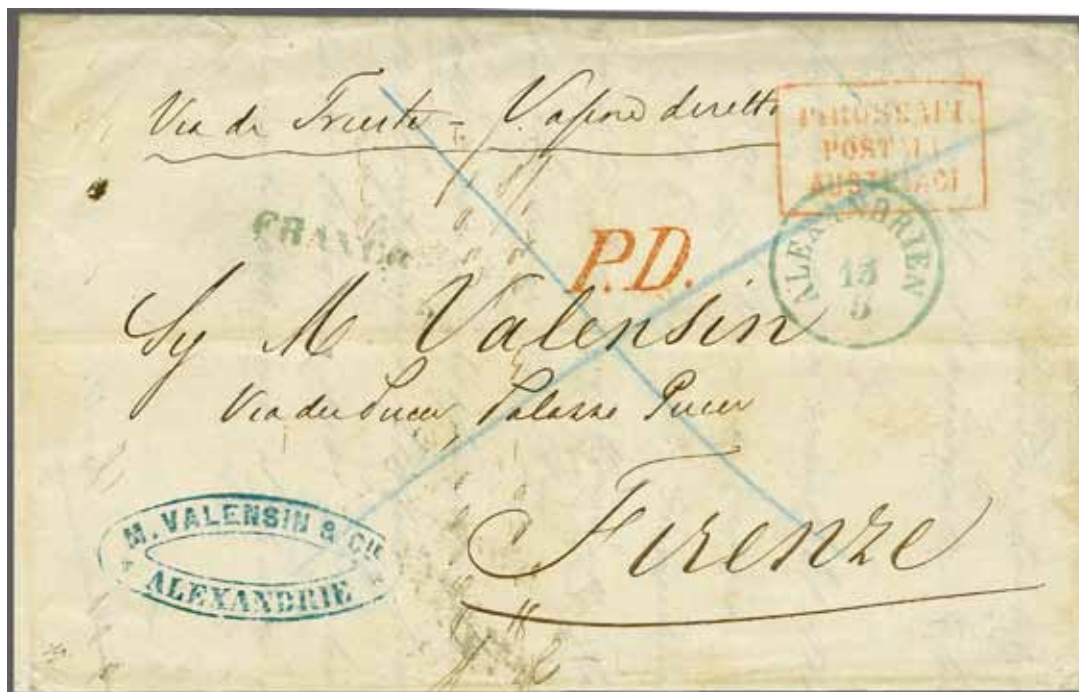 Via di Trieste - Vapore diretto
PIROSCAFI
POSTALI
AUSTRIACI
FRANCO
P.D.
ALEXANDRIEN
15
5
Sy M Valensin
Via dei Pucci, Palazzo Pucci
Firenze
M. VALENSIN & Cie
ALEXANDRIE